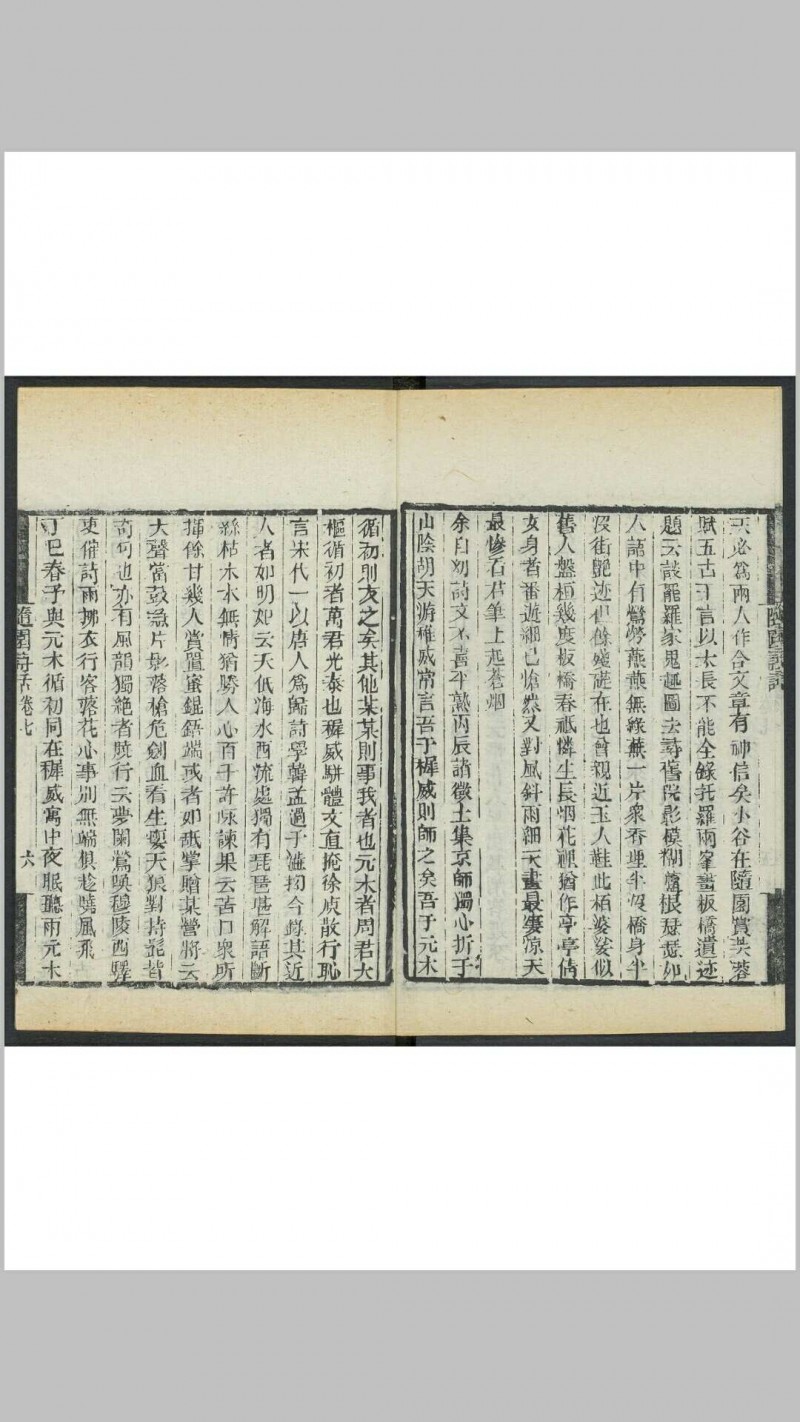 天必為兩人作合文章有神信矣小谷在隨園賞芙蓉
賦五古千言以太長不能全錄托羅兩峯畫板橋遺迹
題云談罷羅家鬼趣圖去尋舊院影模糊
人語中有鶯勞燕燕無綠蕪一片衆香埋半段橋身半
沒街艷迹也餘殘礎在也曾親近玉人鞋此栢婆娑似
舊人盤桓幾度板橋春祇憐生長烟花裡猶作亭亭倩
女身者番遊緪已愴然又對風斜雨細天畫最凄凉天
最慘看君筆上起蒼烟
余自幼詩文不喜平熟丙辰諸徵士集京師獨心折于
山陰胡天游稚威常言吾于稚威則師之矣吾于元木
循初則友之矣其他某某則事我者也元木者周君大
樞循初者萬君光泰也稚威駢體文直掩徐庾散行恥
言宋代一以唐人為歸詩學韓孟過于澁拗今錄其近
人者如明妃云天低海水西流處獨有琵琶堪解語斷
絲枯木本無情猶勝人心百千許詠諫果云苦口衆所
揮餘甘幾人賞置蜜錕鋙端或者如舐掌贈某營將云
大聲當鼓急片影落槍危劍血看生癭天狼對持髭皆
奇句也亦有風韻獨絕者曉行云夢闌鶯喚穆陵西驛
吏催詩雨拂衣行客落花心事別無端俱趁曉風飛
丁巳春予與元木循初同在稚威寓中夜眠聽雨元木
隨園詩話卷七
六